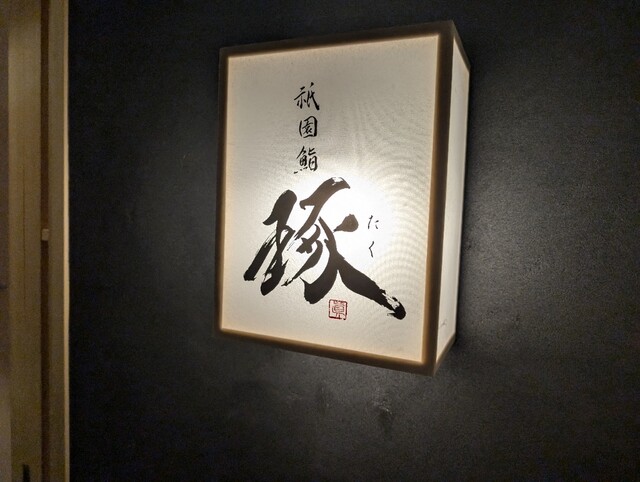 祇園鮨
琢
たく
眞